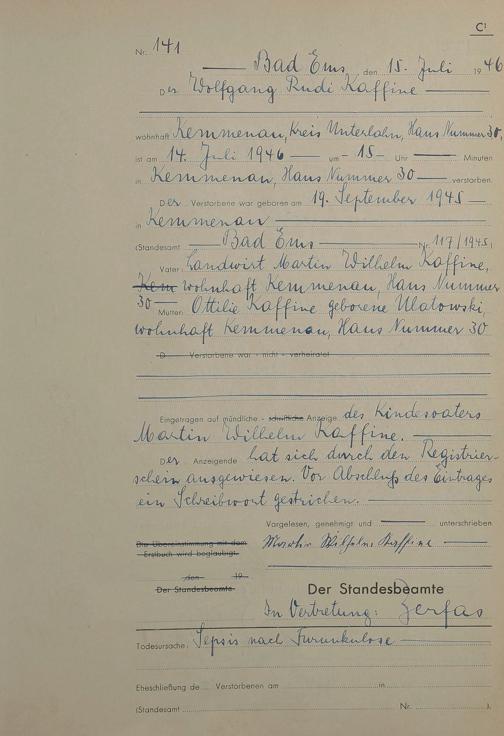 C¹
Nr. 141
Bad Ems, den 15. Juli 1946
Der Wolfgang Rudi Kaffine
wohnhaft Kemmenau, Kreis Unterlahn, Haus Nummer 30,
ist am 14. Juli 1946 um 15 Uhr Minuten
in Kemmenau, Haus Nummer 30 verstorben.
Der Verstorbene war geboren am 19. September 1945
in Kemmenau
(Standesamt Bad Ems Nr. 117/1945)
Vater: Landwirt Martin Wilhelm Kaffine,
Kem wohnhaft Kemmenau, Haus Nummer
30 Mutter: Ottilie Kaffine geborene Ulatowski,
wohnhaft Kemmenau, Haus Nummer 30
D Verstorbene war - nicht - verheiratet
Eingetragen auf mündliche - schriftliche Anzeige des Kindesvaters
Martin Wilhelm Kaffine.
Der Anzeigende hat sich durch den Registrier-
schein ausgewiesen. Vor Abschluß des Eintrages
ein Schreibwort gestrichen.
Vorgelesen, genehmigt und unterschrieben
Die Übereinstimmung mit dem
Erstbuch wird beglaubigt.
Martin Wilhelm Kaffine
den 19
Der Standesbeamte
Der Standesbeamte
In Vertretung: Zerfas
Todesursache: Sepsis nach Furunkulose
Eheschließung de Verstorbenen am in
(Standesamt Nr. ).